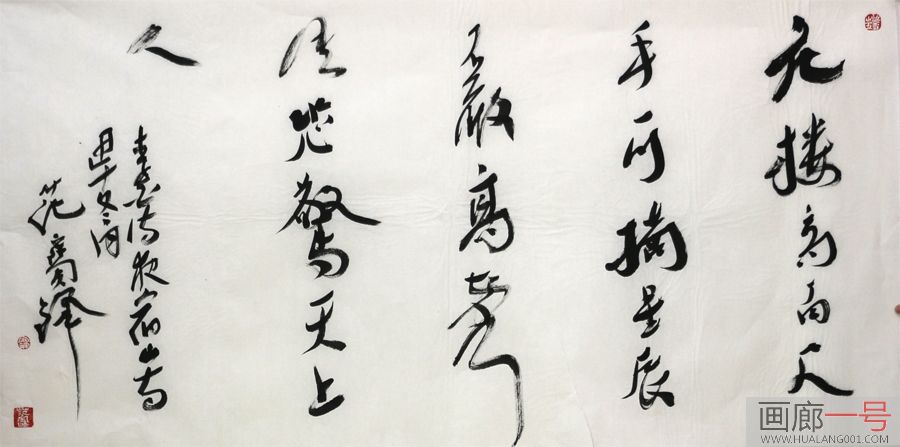 危楼高百尺
手可摘星辰
不敢高声
语恐驚天上
人
李白诗夜宿山寺
画廊一号
WWW.HUALANG001.COM